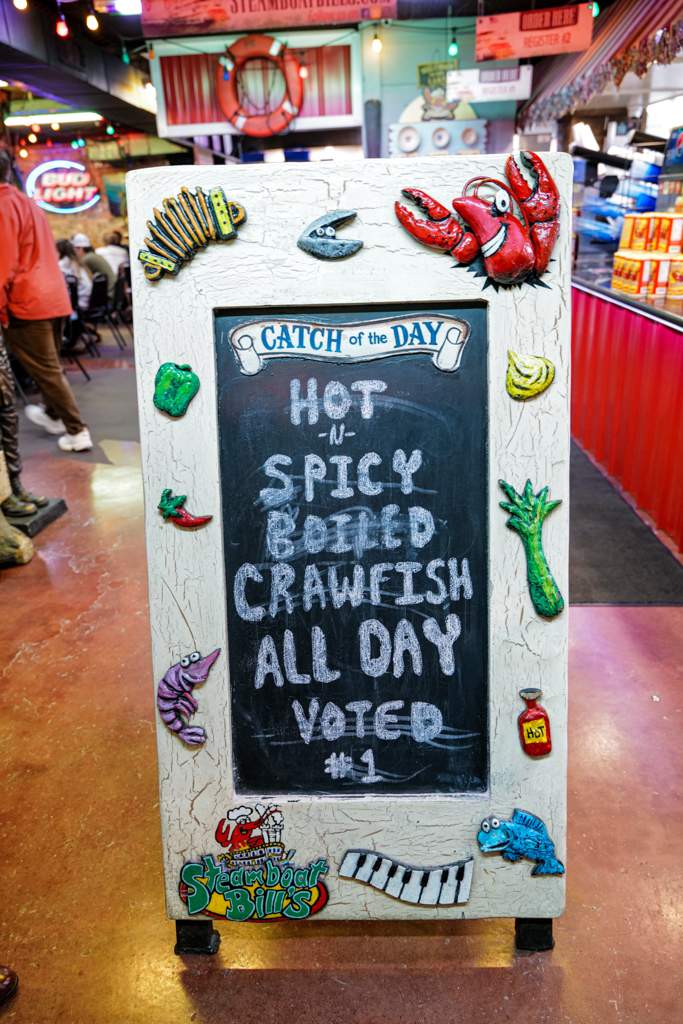 STEAMBOATBILLS.COM
ORDER HERE
REGISTER #2
BUD
LIGHT
CATCH of the DAY
HOT
-N-
SPICY
BOILED
CRAWFISH
ALL DAY
VOTED
#1
HOT
Steamboat
Bill's